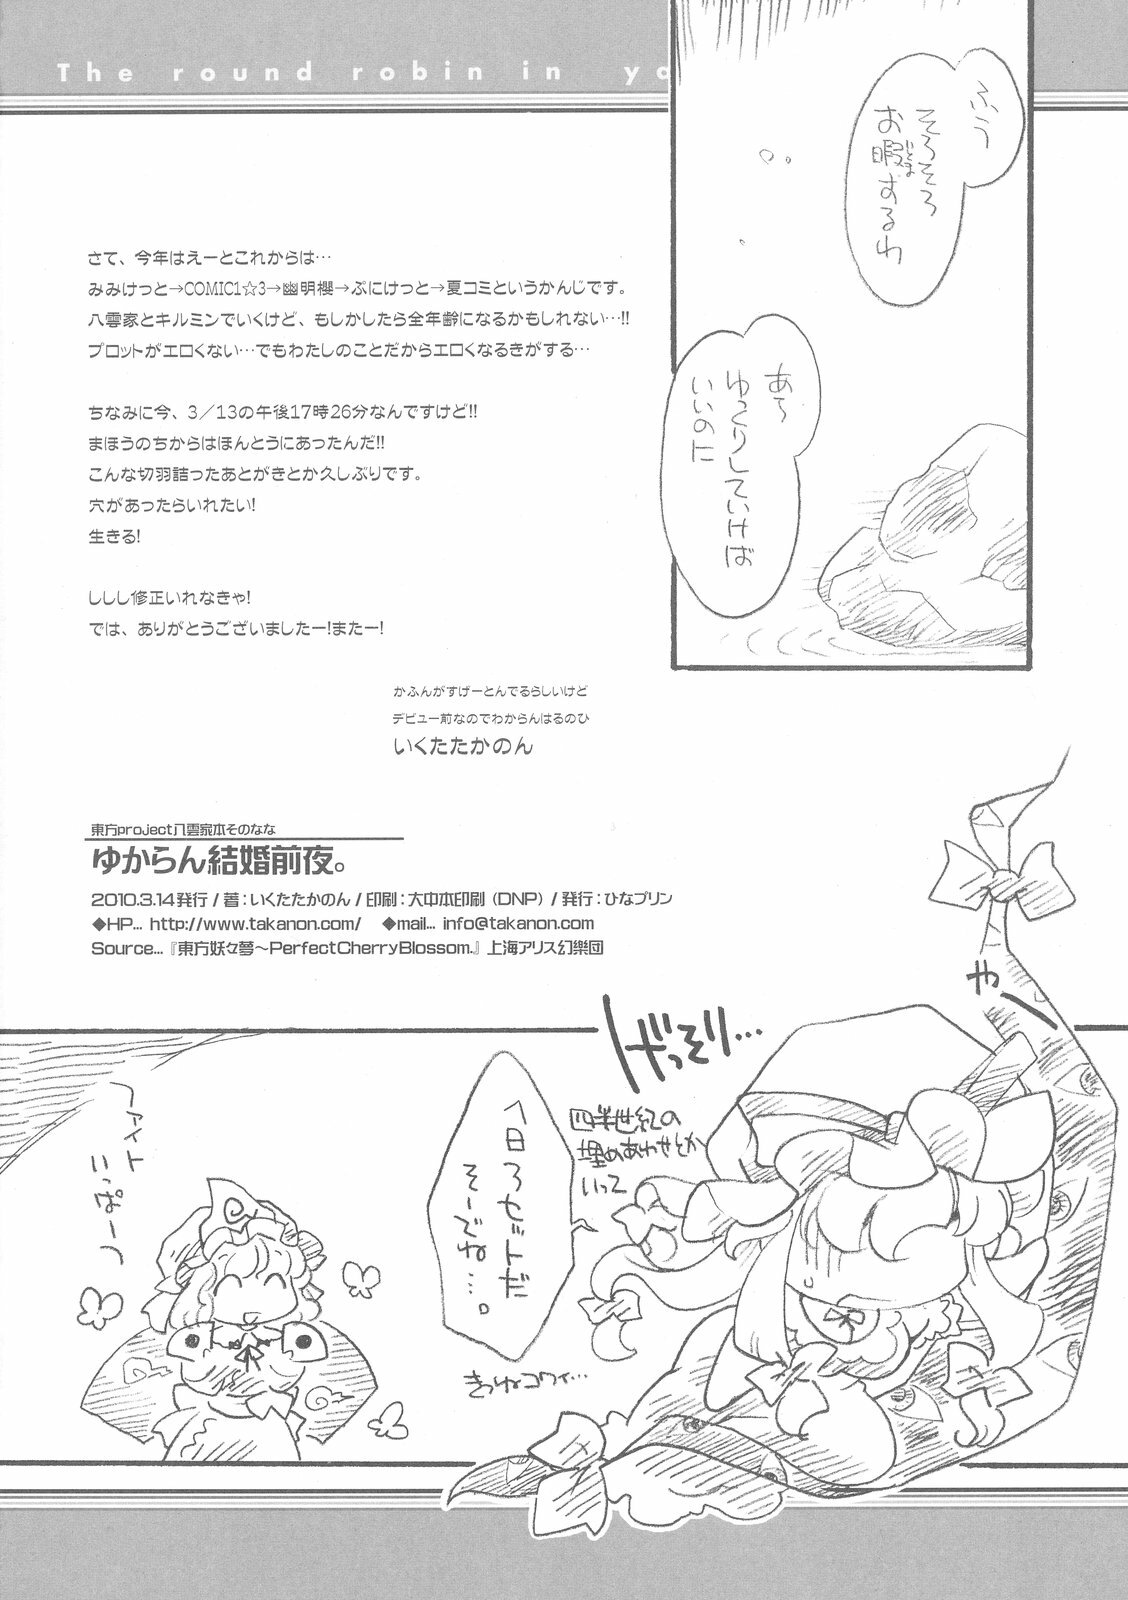 The round robin in ya
ふう
そろそろ
お暇するわ
いとま
あら
ゆっくりしていけば
いいのに
さて、今年はえーとこれからは…
みみけっと→COMIC1☆3→幽明櫻→ぷにけっと→夏コミというかんじです。
八雲家とキルミンでいくけど、もしかしたら全年齢になるかもしれない…!!
プロットがエロくない…でもわたしのことだからエロくなるきがする…
ちなみに今、3/13の午後17時26分なんですけど!!
まほうのちからはほんとうにあったんだ!!
こんな切羽詰ったあとがきとか久しぶりです。
穴があったらいれたい!
生きる!
ししし修正いれなきゃ!
では、ありがとうございましたー!またー!
かふんがすげーとんでるらしいけど
デビュー前なのでわからんはるのひ
いくたたかのん
東方project八雲家本そのなな
ゆからん結婚前夜。
2010.3.14発行 / 著:いくたたかのん / 印刷:大中本印刷 (DNP) / 発行:ひなプリン
◆HP... http://www.takanon.com/ ◆mail... info@takanon.com
Source...『東方妖々夢~PerfectCherryBlossom.』上海アリス幻樂団
や
げっそり…
四半世紀の
埋めあわせとか
いって
1日3セットだ
そーでね…。
きつねコワイ…
ファイト
いっぱーつ